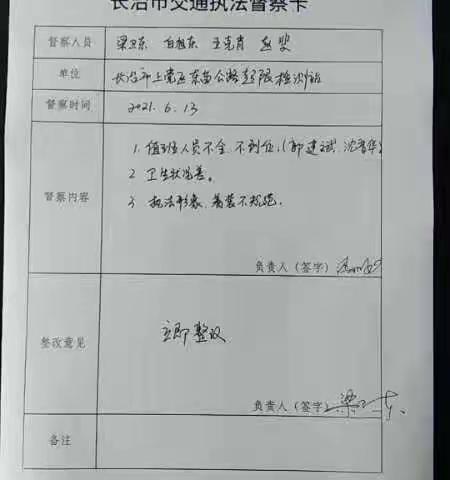 长治市交通执法督察卡
督察人员 梁卫东 白旭东 王克青
单位 长治市上党区东苗公路超限检测站
督察时间 2021.6.13
1. 值班人员不全、不到位,(郭建斌、沈晋华)
2 卫生状况差。
督察内容
3 执法形象、着装不规范.
负责人(签字)
整改意见 立即整改
负责人(签字) 梁卫东
备注